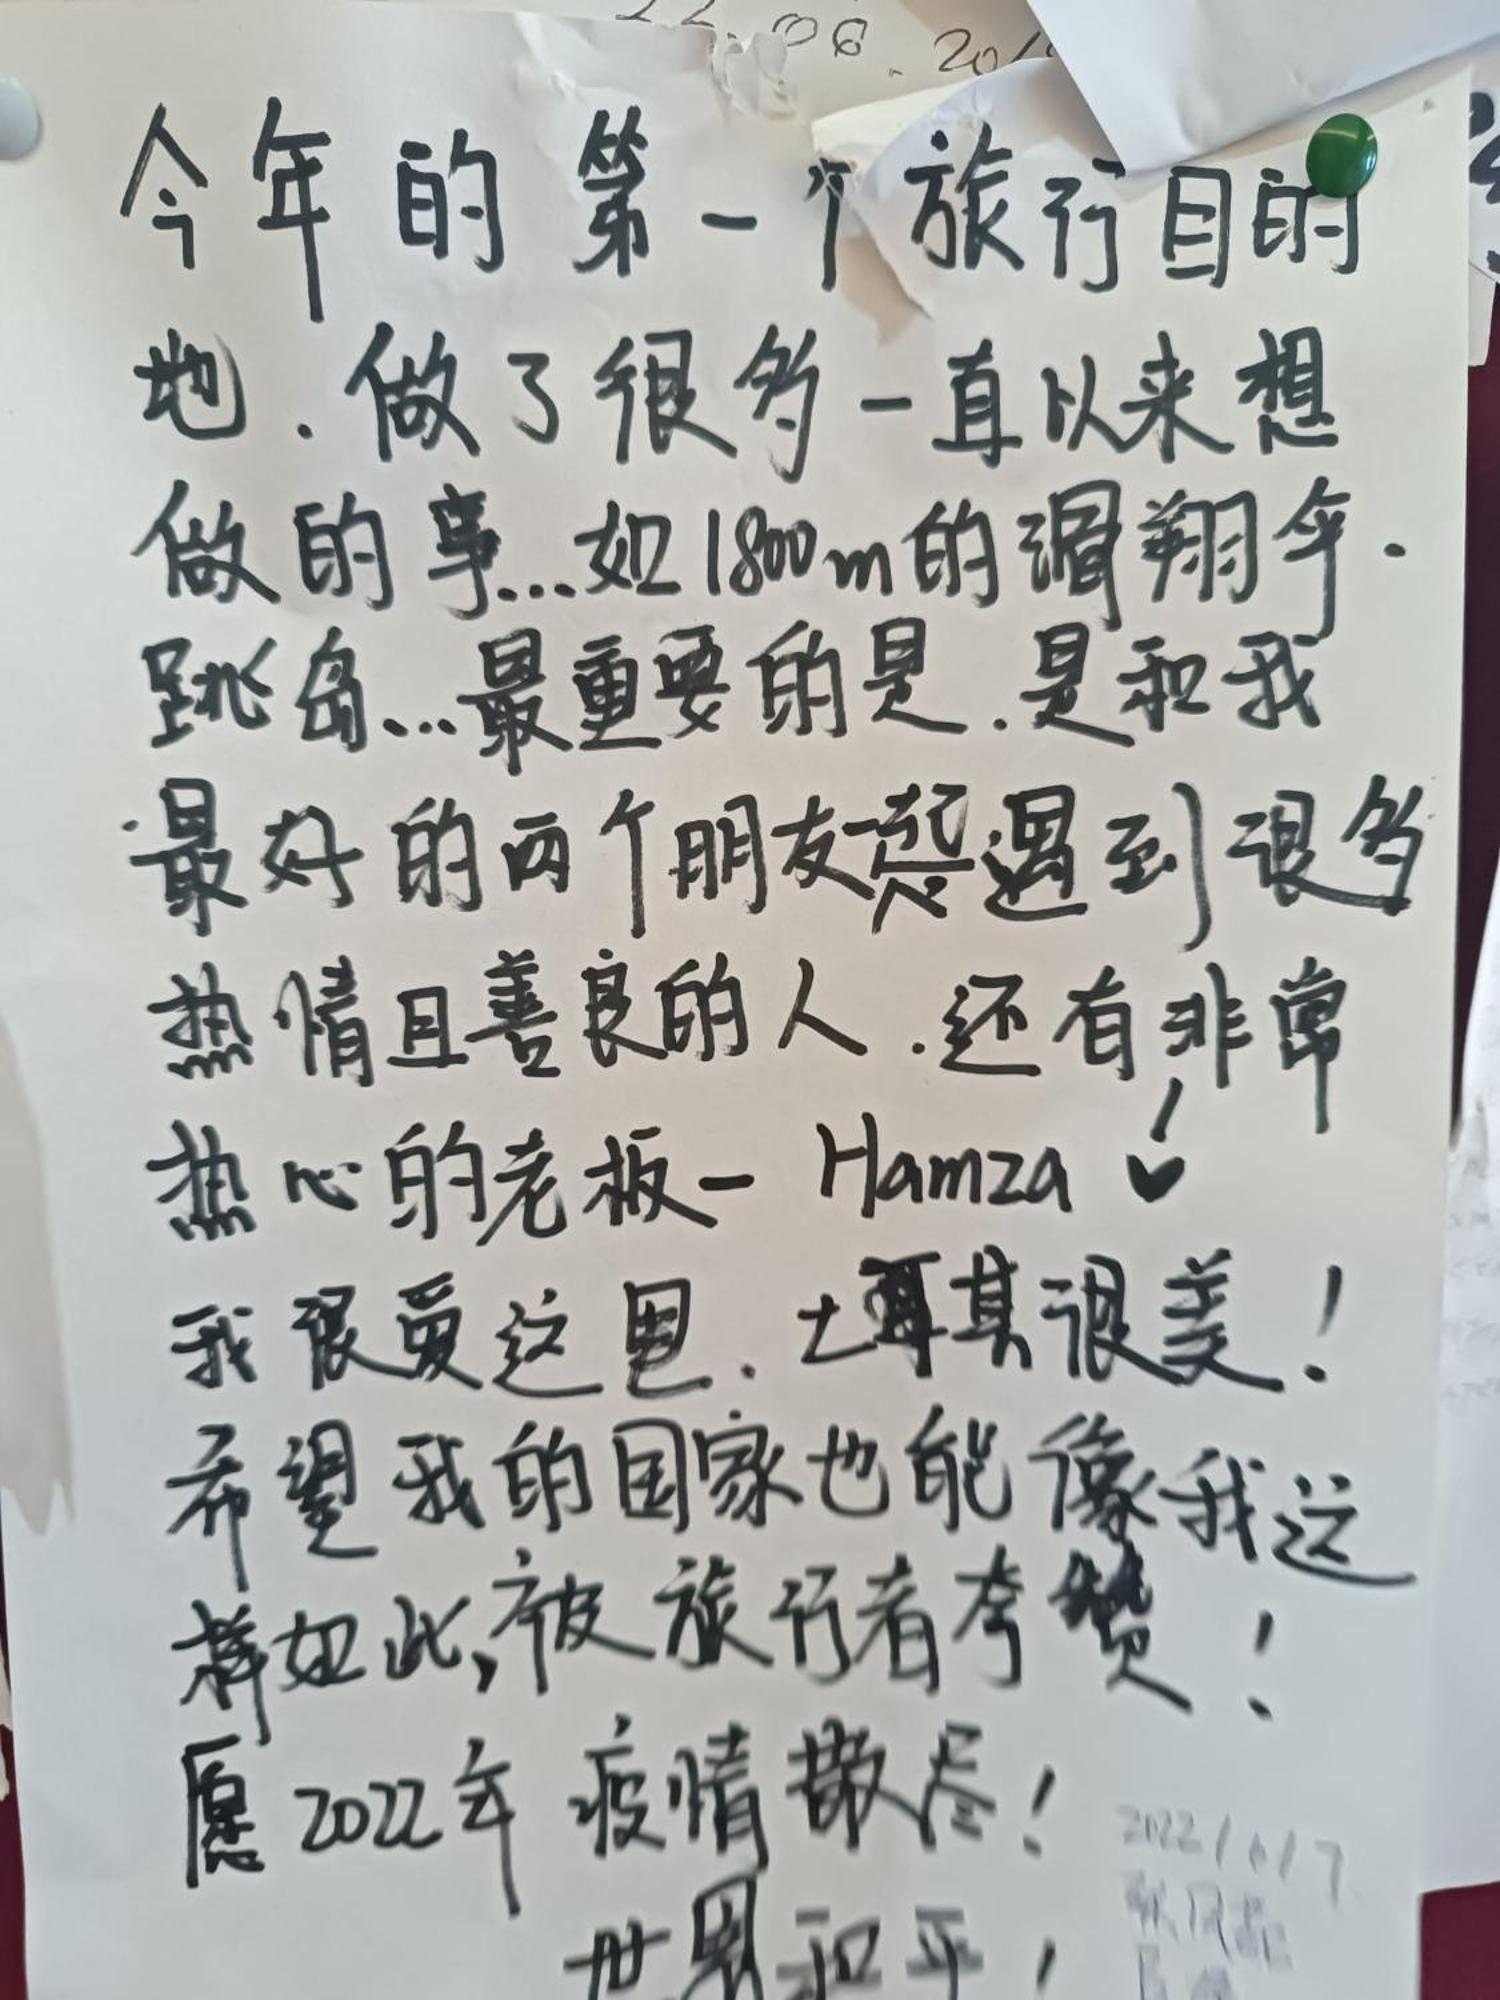 22.06.201
今年的第一个旅行目的
地.做了很多一直以来想
做的事...如1800m的滑翔伞.
跳岛...最重要的是.是和我
最好的两个朋友一起遇到很多
热情且善良的人.还有非常
热心的老板- Hamza
我很爱这里.土耳其很美!
希望我的国家也能像我这
样如此,被旅行者夸赞!
愿2022年疫情散尽!
世界和平!